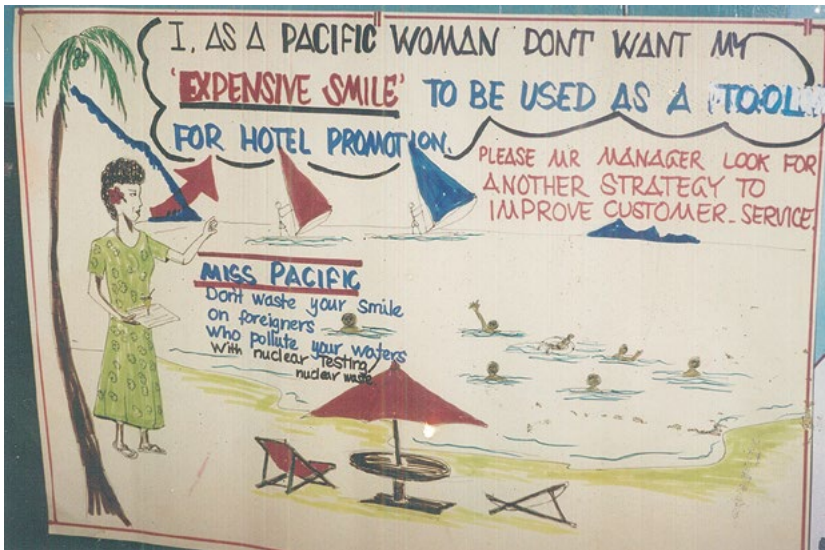 I, AS A PACIFIC WOMAN DONT WANT MY
'EXPENSIVE SMILE' TO BE USED AS A TOOL
FOR HOTEL PROMOTION.
PLEASE MR MANAGER LOOK FOR
ANOTHER STRATEGY TO
IMPROVE CUSTOMER-SERVICE.
MISS PACIFIC
Dont waste your smile
on foreigners
who pollute your waters
With nuclear testing/
nuclear waste